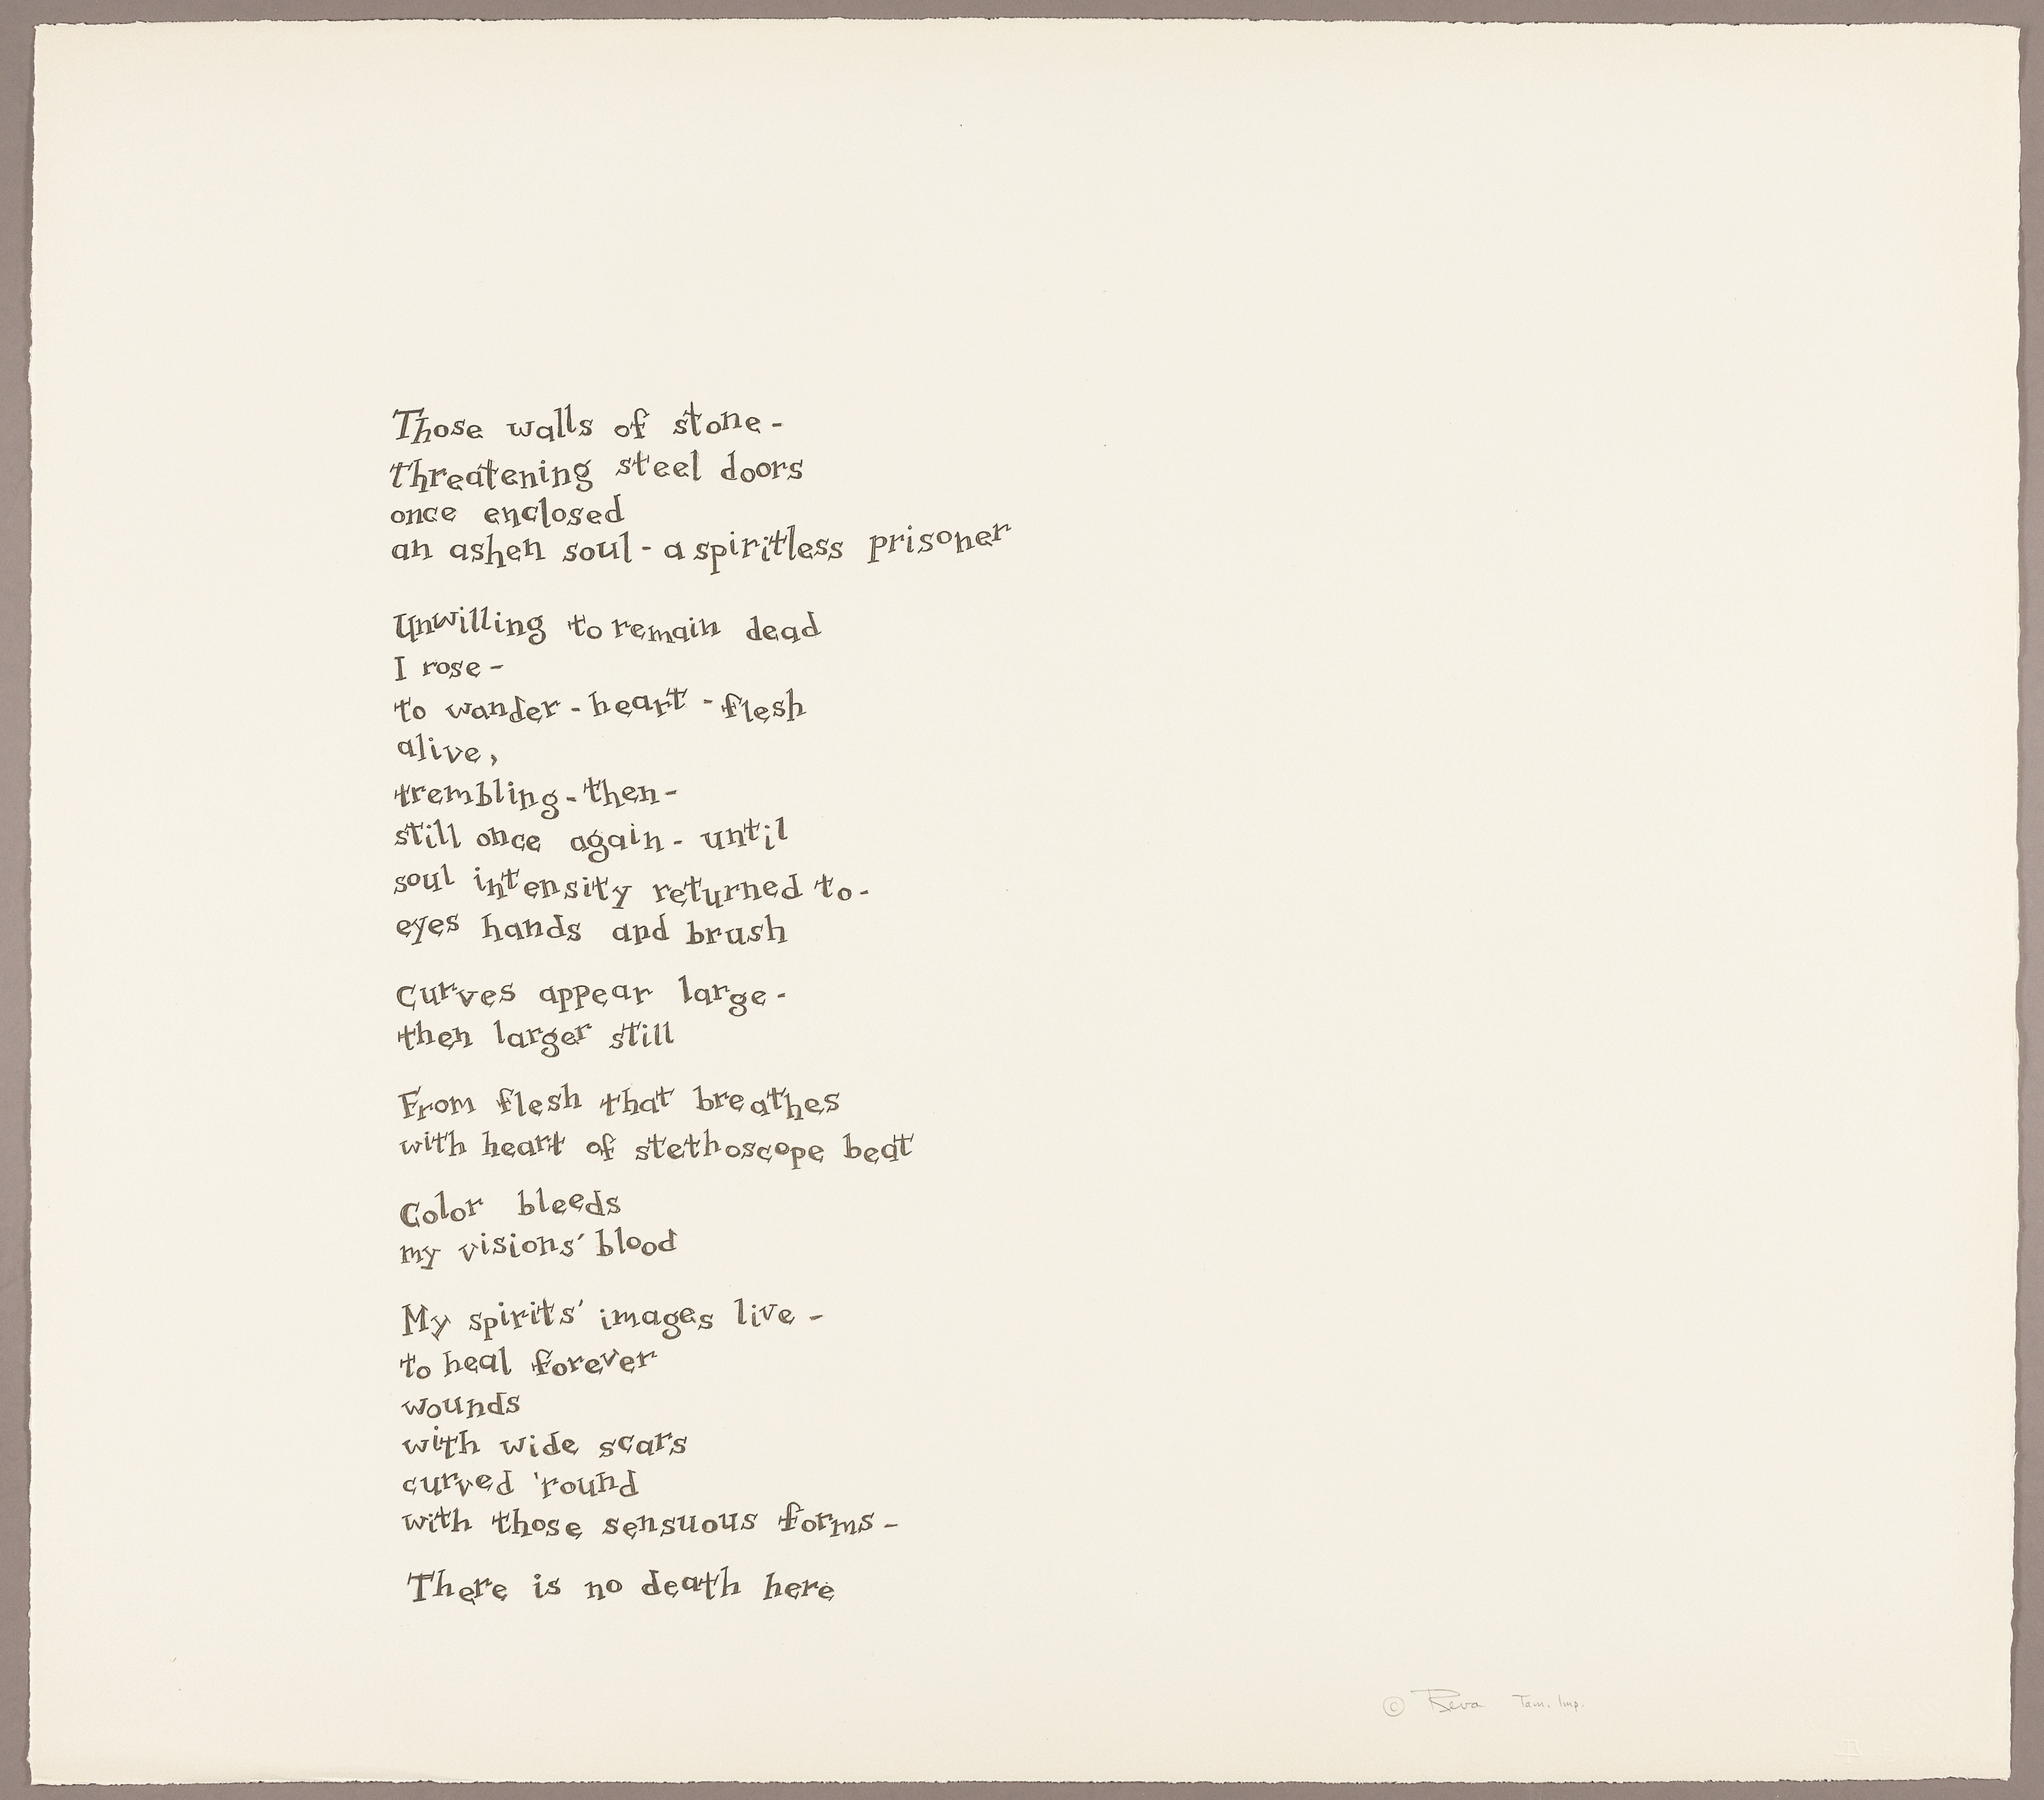 Those walls of stone -
threatening steel doors
once enclosed
an ashen soul - a spiritless prisoner
Unwilling to remain dead
I rose -
to wander - heart - flesh
alive,
trembling - then -
still once again - until
soul intensity returned to -
eyes hands and brush
Curves appear large -
then larger still
From flesh that breathes
with heart of stethoscope beat
Color bleeds
my visions' blood
My spirits' images live -
to heal forever
wounds
with wide scars
curved 'round
with those sensuous forms -
There is no death here
© Reva Tam. Imp.